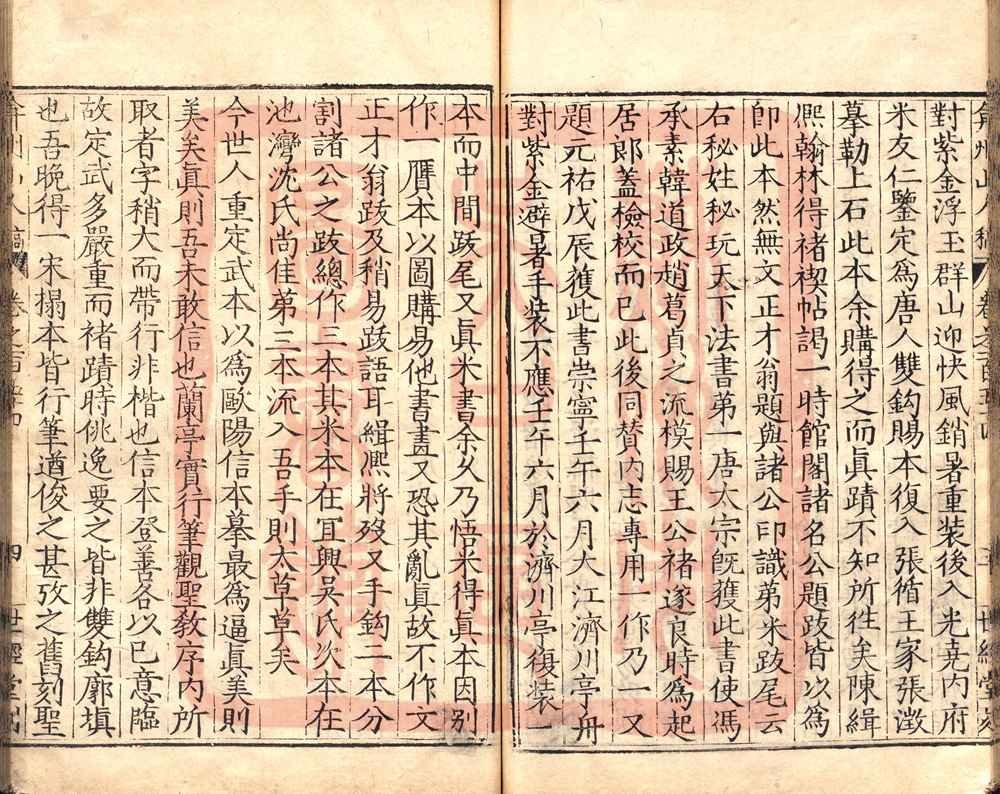 弇州山人稿 卷之一百三十四 三 世經堂刻
對紫金浮玉群山迎快風銷暑重装後入光堯内府
米友仁鑒定爲唐人雙鈎賜本復入張循王家張澂
摹勒上石此本余購得之而真蹟不知所徃矣陳緝
熈翰林得褚禊帖謁一時館閣諸名公題跋皆以爲
卽此本然無文正才翁題與諸公印識弟米跋尾云
右秘姓秘玩天下法書第一唐太宗旣獲此書使馮
承素韓道政趙葛貞之流模賜王公褚遂良時爲起
居郎蓋檢校而已此後同贊内志專用一作乃一又
題元祐戊辰獲此書崇寧壬午六月大江濟川亭舟
對紫金避暑手装不應壬午六月於濟川亭復装一
本而中間跋尾又真米書余久乃悟米得真本因别
作一贋本以圖購易他書畫又恐其亂真故不作文
正才翁跋及稍易跋語耳緝熈將歿又手鈎二本分
割諸公之跋總作三本其米本在宜興吳氏次本在
池灣沈氏尚佳第三本流入吾手則太草草矣
今世人重定武本以爲歐陽信本摹最爲逼真美則
美矣真則吾未敢信也蘭亭實行筆觀聖教序内所
取者字稍大而帶行非楷也信本登善各以已意臨
故定武多嚴重而褚蹟時佻逸要之皆非雙鈎廓填
也吾晚得一宋搨本皆行筆遒俊之甚攷之舊刻聖
弇州山人稿 卷之一百三十四 四 世經堂刻